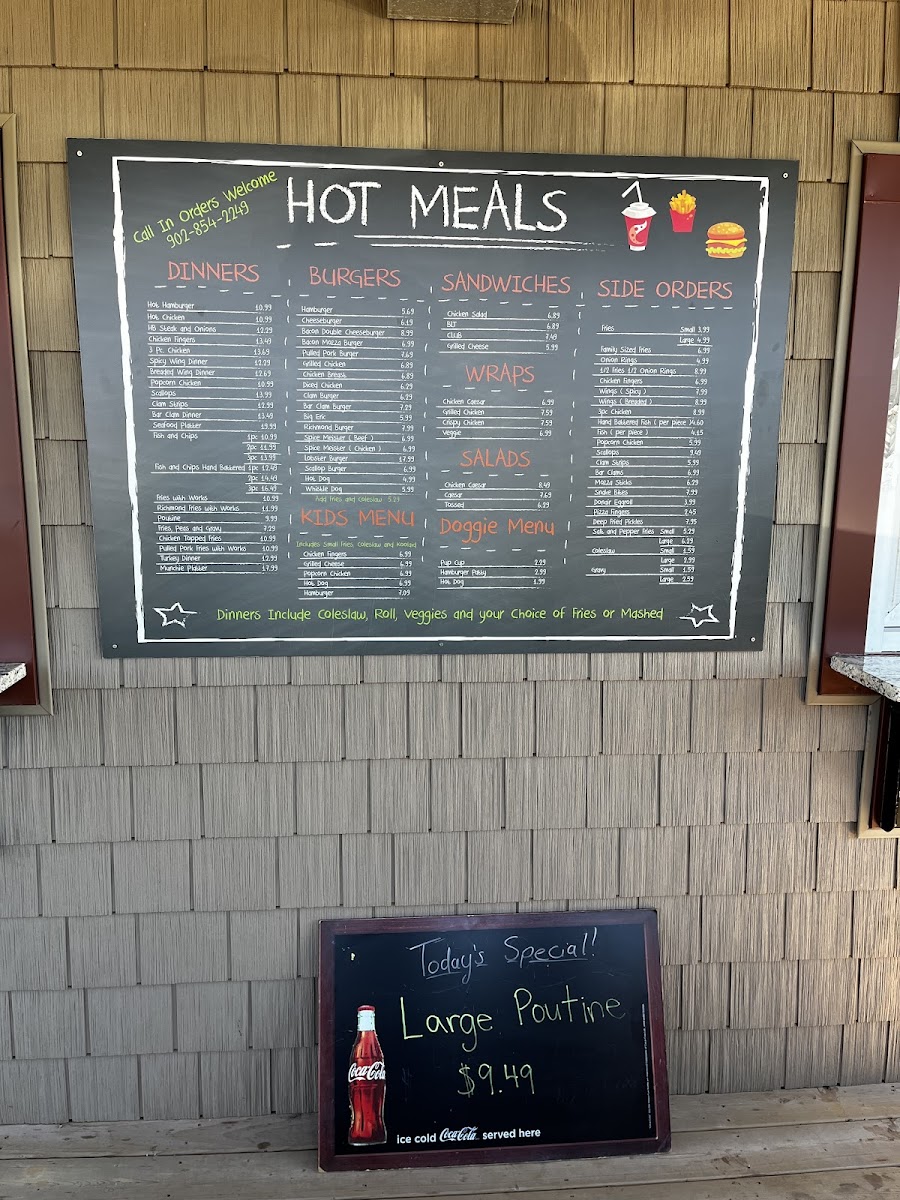 Call In Orders Welcome
902-854-2249
HOT MEALS
DINNERS
Hot Hamburger 10.99
Hot Chicken 10.99
HB Steak and Onions 12.29
Chicken Fingers 13.49
3 Pc. Chicken 13.69
Spicy Wing Dinner 12.29
Breaded Wing Dinner 12.69
Popcorn Chicken 10.99
Scallops 13.99
Clam Strips 12.99
Bar Clam Dinner 13.49
Seafood Platter 19.99
Fish and Chips 1pc 10.99
2pc 11.99
3pc 13.99
Fish and Chips Hand Battered 1pc 12.49
2pc 14.49
3pc 16.49
Fries with Works 10.99
Richmond Fries with Works 11.99
Poutine 9.99
Fries, Peas and Gravy 7.29
Chicken Topped Fries 10.99
Pulled Pork Fries with Works 10.99
Turkey Dinner 12.99
Munchie Platter 17.99
BURGERS
Hamburger 5.69
Cheeseburger 6.19
Bacon Double Cheeseburger 8.99
Bacon Mozza Burger 6.99
Pulled Pork Burger 7.69
Grilled Chicken 6.89
Chicken Breast 6.89
Diced Chicken 6.29
Clam Burger 6.29
Bar Clam Burger 7.29
Big Eric 5.99
Richmond Burger 7.99
Spice Meister ( Beef ) 6.99
Spice Meister ( Chicken ) 6.99
Lobster Burger 17.99
Scallop Burger 6.99
Hot Dog 4.99
Whistle Dog 5.99
Add Fries and Coleslaw 5.29
KIDS MENU
Includes Small Fries, Coleslaw and
Chicken Fingers 6.99
Grilled Cheese 6.99
Popcorn Chicken 6.99
Hot Dog 6.99
Hamburger 7.09
SANDWICHES
Chicken Salad 6.89
BLT 6.89
CLUB 7.49
Grilled Cheese 5.99
WRAPS
Chicken Caesar 6.99
Grilled Chicken 7.59
Crispy Chicken 7.59
Veggie 6.99
SALADS
Chicken Caesar 8.49
Caesar 7.69
Tossed 6.29
Doggie Menu
Pup Cup 2.29
Hamburger Patty 2.99
Hot Dog 1.99
SIDE ORDERS
Fries Small 3.99
Large 4.99
Family Sized Fries 6.99
Onion Rings 4.99
1/2 Fries 1/2 Onion Rings 8.99
Chicken Fingers 6.99
Wings ( Spicy ) 7.99
Wings ( Breaded ) 8.99
3pc Chicken 8.99
Hand Battered Fish ( per piece )4.60
Fish ( per piece ) 4.15
Popcorn Chicken 5.99
Scallops 9.49
Clam Strips 5.99
Bar Clams 6.99
Mozza Sticks 6.29
Snake Bites 7.99
Donair Eggroll 3.99
Pizza Fingers 8.45
Deep Fried Pickles 7.95
Salt and Pepper Fries Small 5.29
Large 6.29
Coleslaw Small 1.59
Large 2.99
Gravy Small 1.59
Large 2.59
Dinners Include Coleslaw, Roll, Veggies and your Choice of Fries or Mashed
Today's Special!
Large Poutine
$9.49
Coca-Cola
ice cold Coca-Cola served here